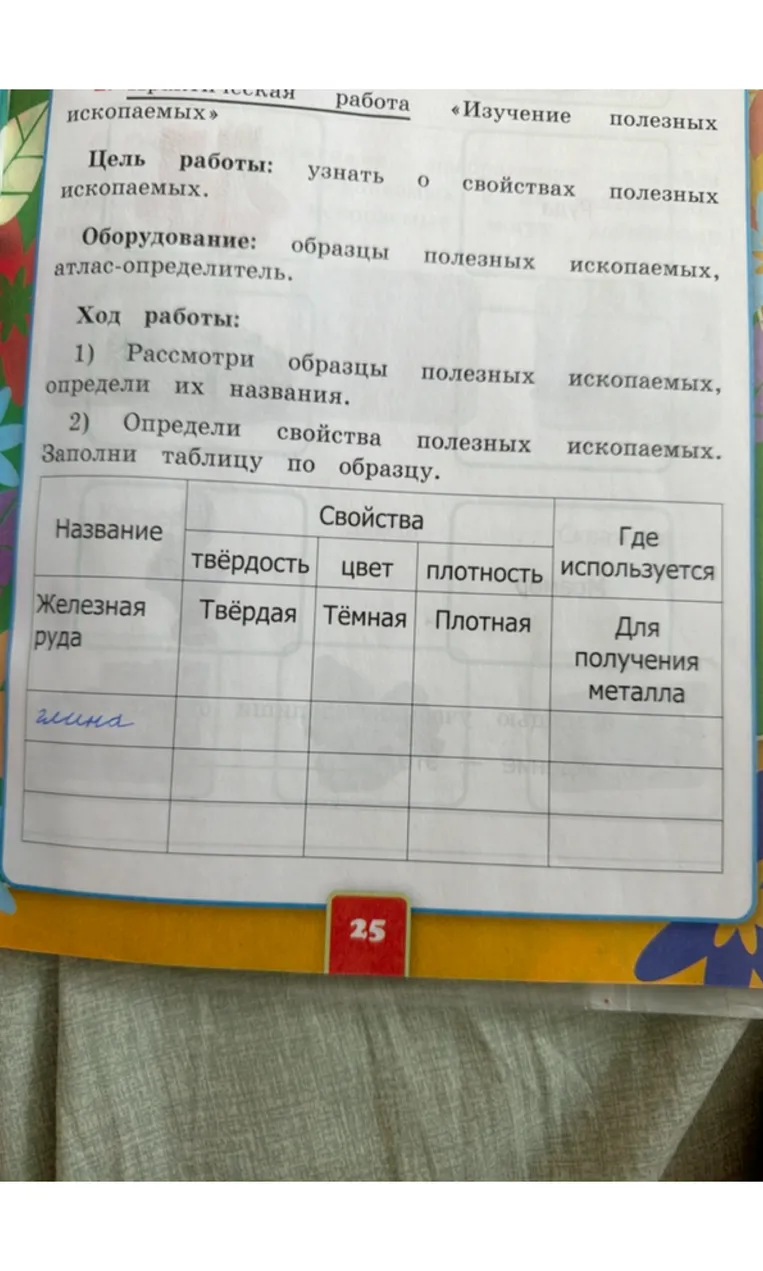 Практическая работа «Изучение полезных
ископаемых»
Цель работы: узнать о свойствах полезных
ископаемых.
Оборудование: образцы полезных ископаемых,
атлас-определитель.
Ход работы:
1) Рассмотри образцы полезных ископаемых,
определи их названия.
2) Определи свойства полезных ископаемых.
Заполни таблицу по образцу.
Название
Свойства
Где
используется
твёрдость цвет плотность
Железная
руда
Твёрдая Тёмная Плотная
Для
получения
металла
глина
25